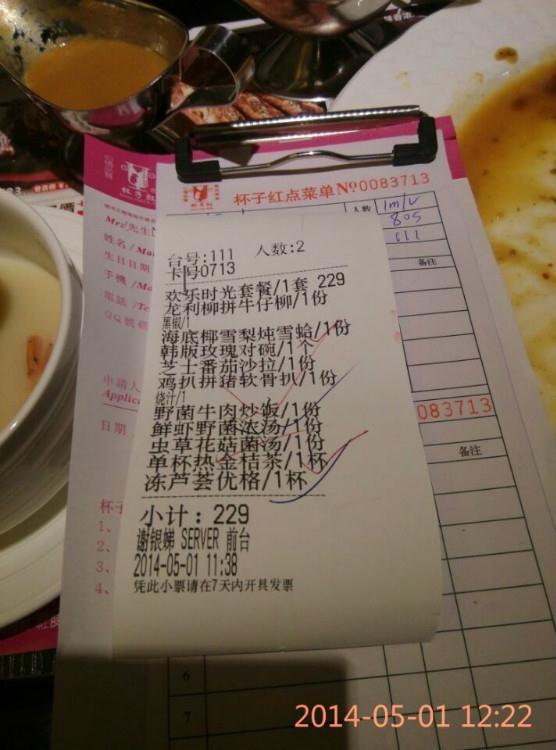 杯子红点菜单№0083713
人数
1m/v
805
111
备注
Mrs/先生
姓名/Ma
生日日期
手機/Mo
電話/Te
QQ號
申請人
Applic
日期
杯子
1、
2、
3、
4、
台号:111 人数:2
卡号0713
欢乐时光套餐/1套 229
龙利柳拼牛仔柳/1份
黑椒/1
海底椰雪梨炖雪蛤/1份
韩版玫瑰对碗/1个
芝士番茄沙拉/1份
鸡扒拼猪软骨扒/1份
烧汁/1
野菌牛肉炒饭/1份
鲜虾野菌浓汤/1份
虫草花菇菌汤/1份
单杯热金桔茶/1杯
冻芦荟优格/1杯
小计：229
谢银娣 SERVER 前台
2014-05-01 11:38
凭此小票请在7天内开具发票
083713
备注
6
7
2014-05-01 12:22